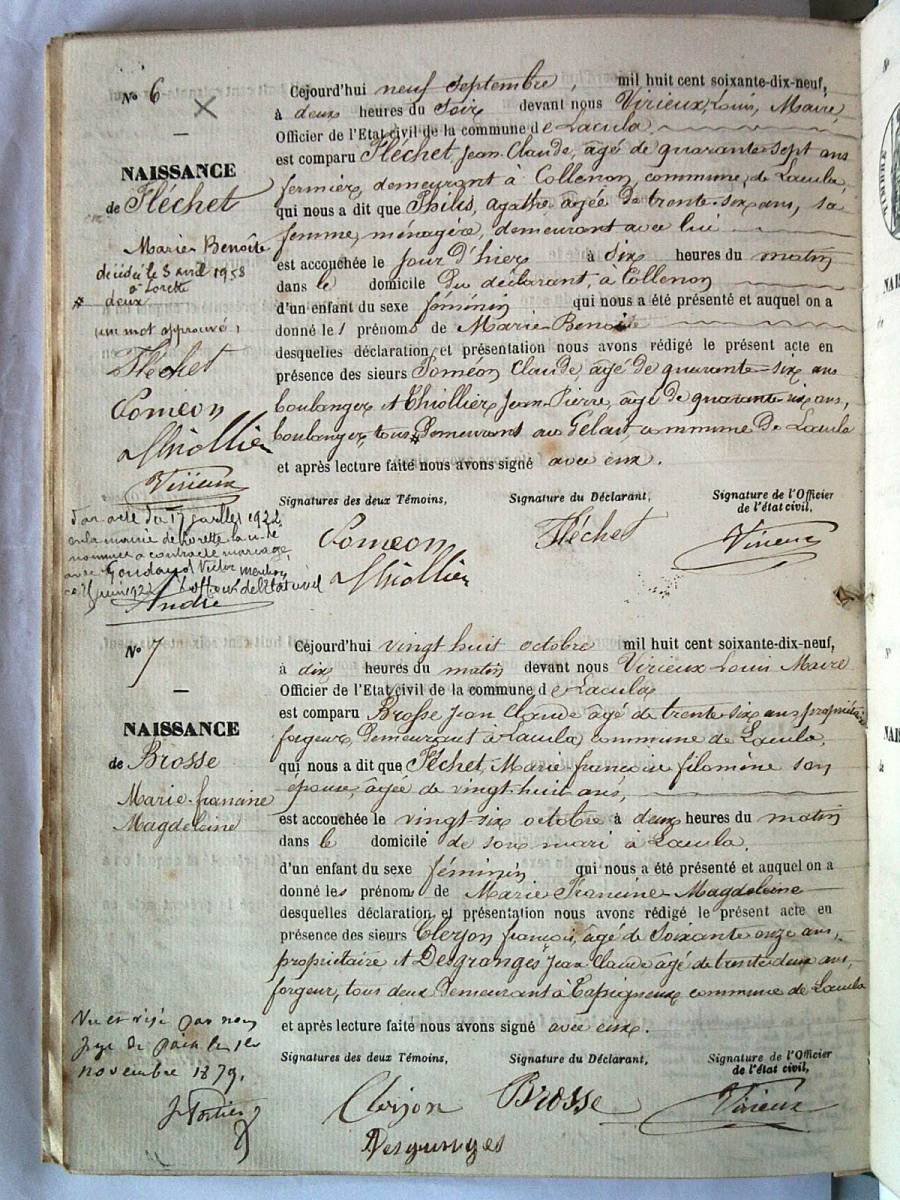 N° 6
Cejourd'hui neuf septembre, mil huit cent soixante-dix-neuf,
à deux heures du Soir devant nous Virieux, Louis, Maire,
Officier de l'Etat civil de la commune de Lacula
est comparu Fléchet, Jean-Claude, âgé de quarante-sept ans
fermier, demeurant à Collenon, commune de Lacula,
qui nous a dit que Philis, agathe âgée de trente-six ans, sa
femme, ménagère, demeurant avec lui
est accouchée le jour d'hier à six heures du matin
dans le domicile du déclarant, à Collenon
d'un enfant du sexe féminin qui nous a été présenté et auquel on a
donné les prénoms de Marie-Benoite
desquelles déclaration et présentation nous avons rédigé le présent acte en
présence des sieurs Poméon Claude âgé de quarante-six ans
boulanger et Thiollier Jean-Pierre, âgé de quarante-six ans,
boulanger, tous # demeurant au commune de Lacula
et après lecture faite nous avons signé avec eux.
Signatures des deux Témoins, Signature du Déclarant, Signature de l'Officier
de l'état civil,
Poméon Fléchet Virieux
Thiollier
NAISSANCE
de Fléchet
Marie-Benoîte
décédée le 3 avril 1958
à Lorette
# deux
un mot approuvé,
Fléchet
Poméon
Thiollier
Virieux
Par acte du 17 juillet 1922
en la mairie de Lorette la
nommée a contracté mariage
avec Victor
juin 1922 l'officier de l'Etat civil
André
N° 7
Cejourd'hui vingt huit octobre mil huit cent soixante-dix-neuf,
à dix heures du matin devant nous Virieux Louis Maire
Officier de l'Etat civil de la commune de Lacula
est comparu Brosse Jean Claude âgé de trente-six ans propriétaire
forgeur, demeurant à Lacula, commune de Lacula,
qui nous a dit que Fléchet, Marie francoise filomine son
épouse, âgée de vingt-huit ans,
est accouchée le vingt-six octobre à deux heures du matin
dans le domicile de son mari à Lacula,
d'un enfant du sexe féminin qui nous a été présenté et auquel on a
donné les prénoms de Marie Francine Magdeleine
desquelles déclaration et présentation nous avons rédigé le présent acte en
présence des sieurs Clerjon francois, âgé de Soixante onze ans,
propriétaire et Desgranges Jean Claude âgé de trente deux ans,
forgeur, tous deux demeurant à commune de Lacula
et après lecture faite nous avons signé avec eux.
Signatures des deux Témoins, Signature du Déclarant, Signature de l'Officier
de l'état civil,
Clerjon Brosse Virieux
Desgranges
NAISSANCE
de Brosse
Marie-francine
Magdeleine
Vu et visé par nous
Juge de paix le 1er
novembre 1879,